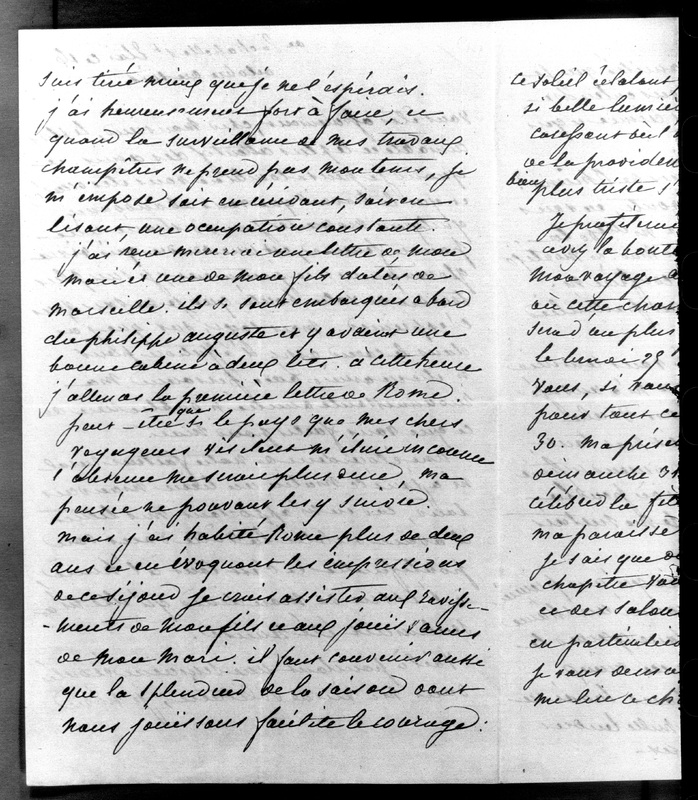 suis tirée mieux que je ne l'espérais.
j'ai heureusement fort à faire, et
quand la surveillance de mes travaux
champêtres ne prend pas mon tems, je
m'impose soit en écrivant, soit en
lisant une occupation constante.
j'ai reçu une lettre de mon
mari et une de mon fils datées de
marseille. ils se sont embarqués à bord
du philippe auguste et y avaient une
bonne cabine à deux lits. à cette heure
j'attends la première lettre de Rome.
peut-être que si le pays que mes chers
voyageurs visitent m'était inconnu
l'absence me serait plus dure, ma
pensée ne pouvant les y suivre.
mais j'ai habité Rome plus de deux
ans et en évoquant les impressions
de ce séjour je crois assister aux ravisse-
-ments de mon fils et aux jouissances
de mon mari. il faut convenir aussi
que la splendeur de la saison dont
nous jouissons facilite le courage:
ce soleil éclatant
si belle lumière
de la providen
bien plus triste
Je profiterai
avez la bonté
mon voyage
ou cette cha
sera au plus
le lundi 29
vous, si vous
pour tout ce
30. ma prése
dimanche 31
célébrer la fê
ma paroisse
je sais que
chapitre
et des salon
en particulier
je vous dema
me lire ce ch